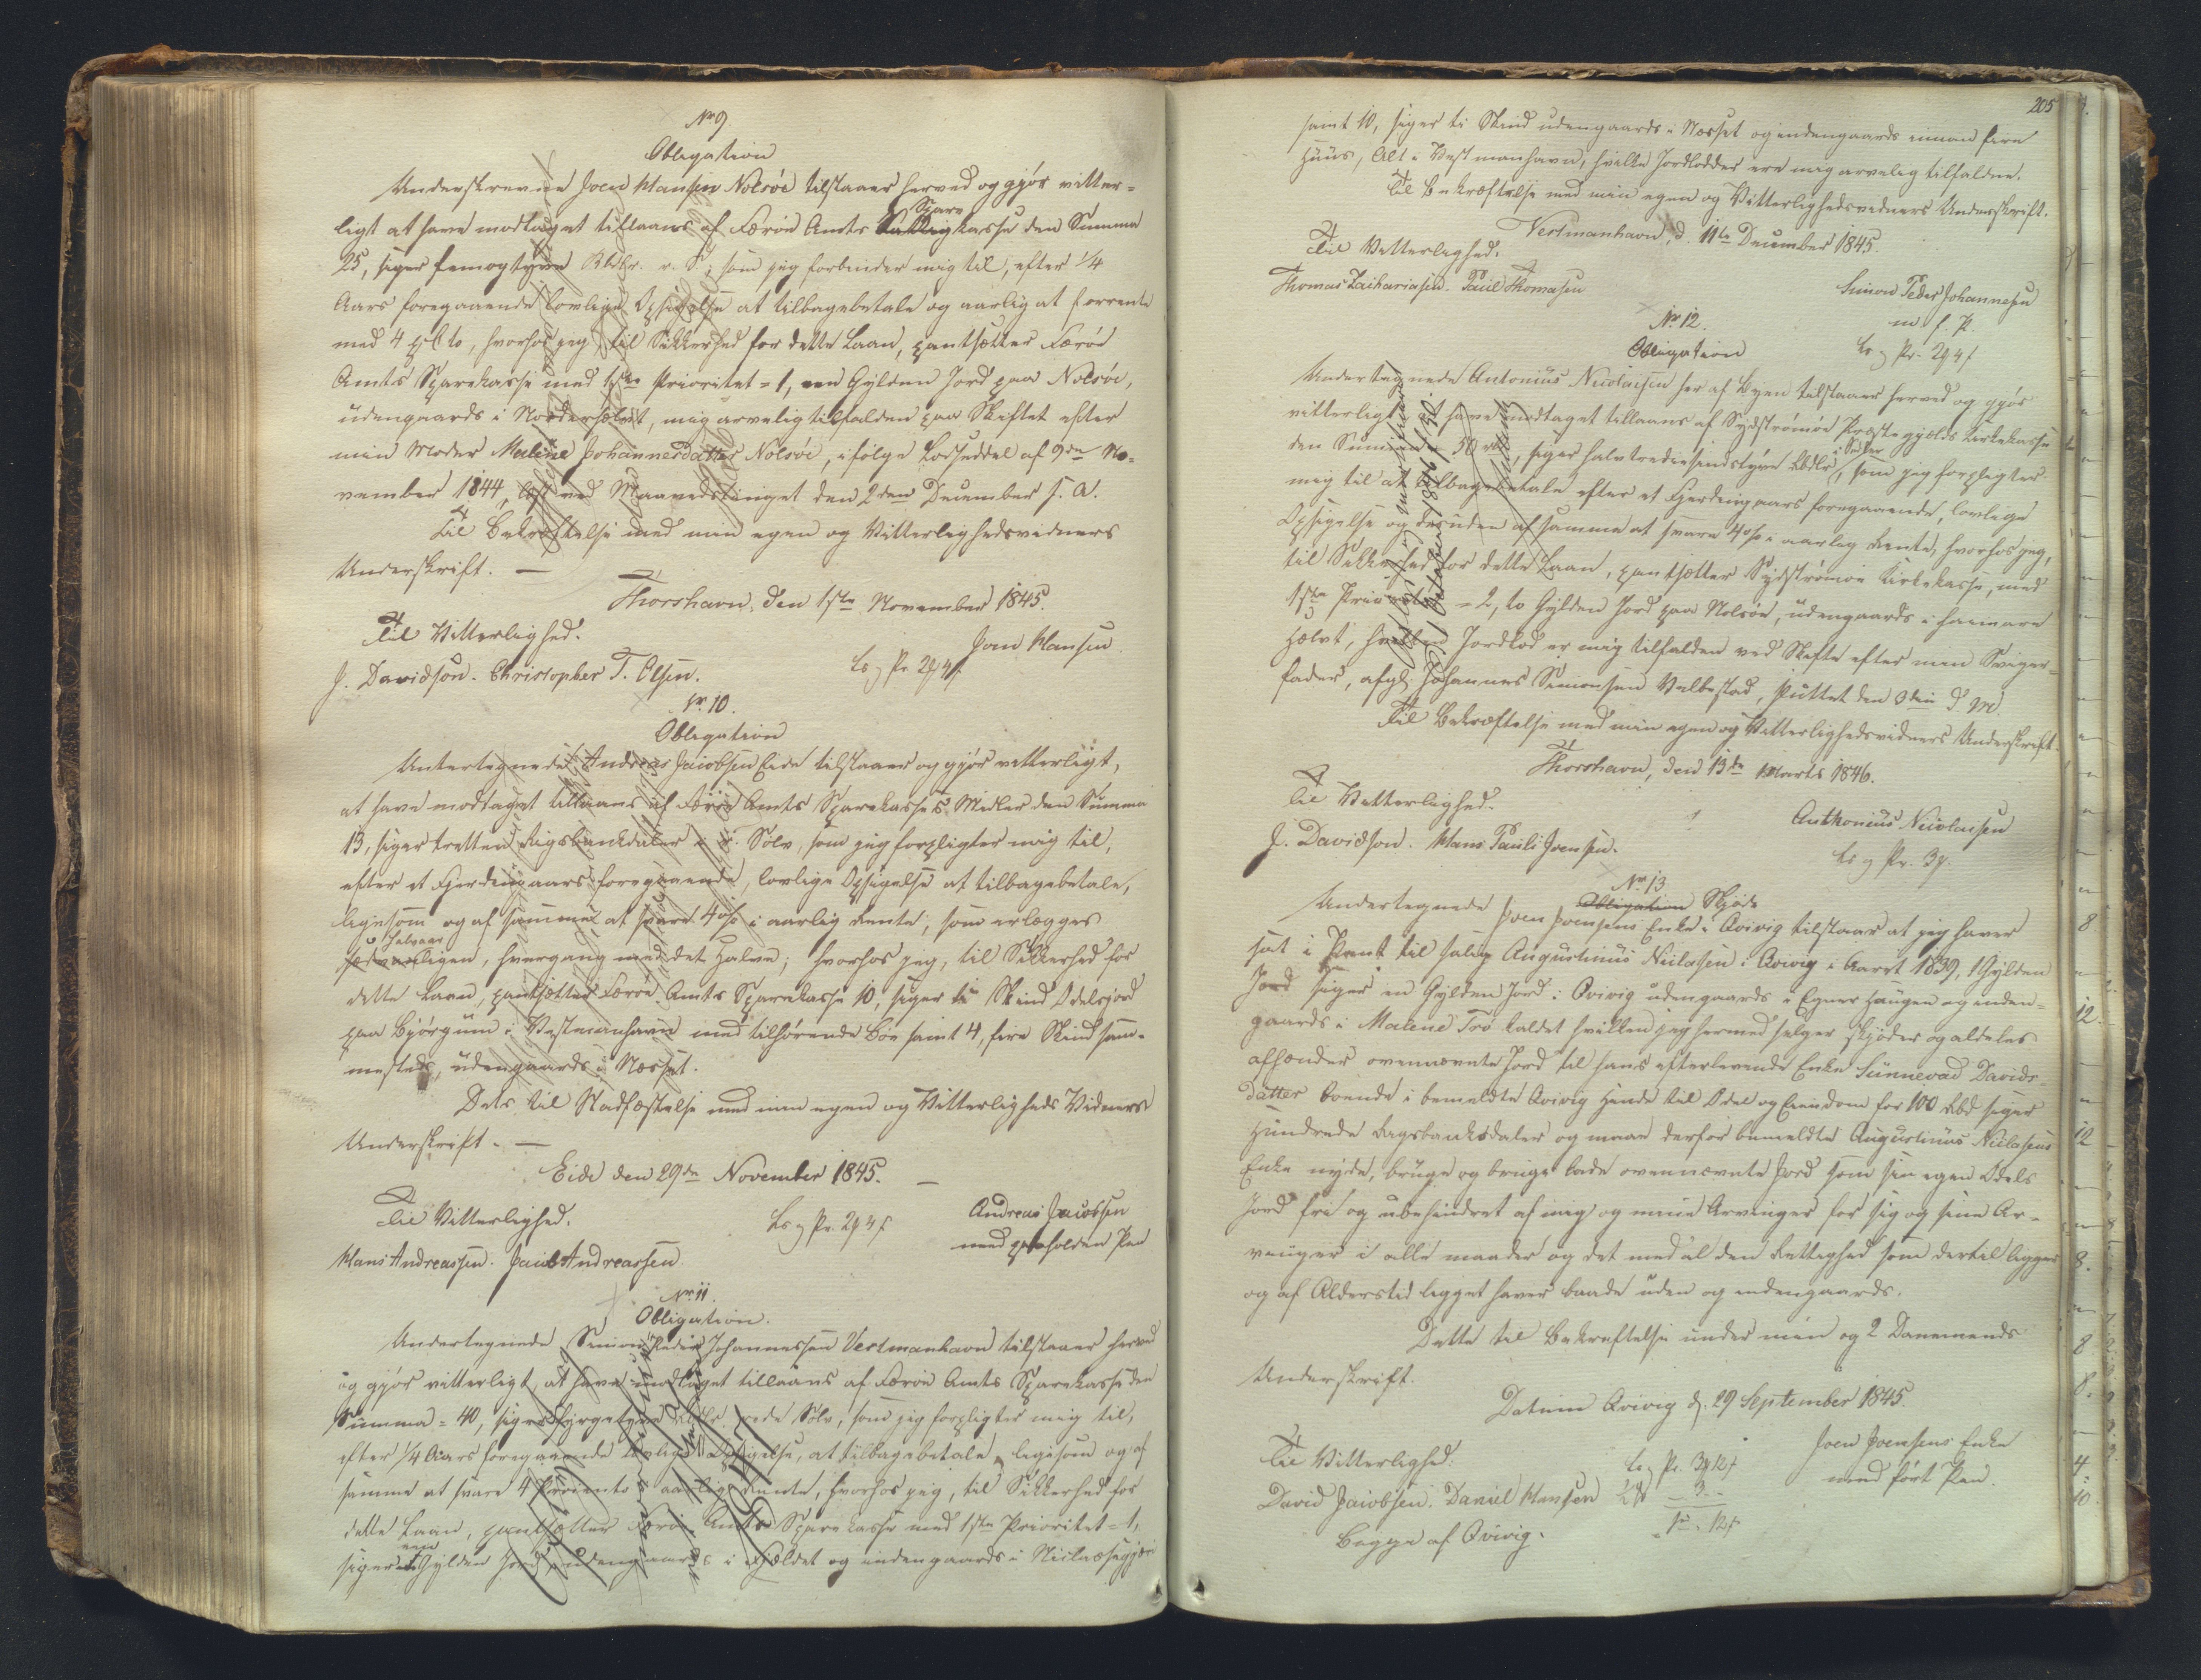 No 9.
Obligation
Underskrevne Joen Hansen Nolsöe tilstaaer herved og gjör vitter-
ligt at have modtaget tillaans af Færöe Amts Spare kasse den Summa
25, siger femogtyve Rbdlr. r. S., som jeg forbinder mig til, efter 1/4
Aars foregaaende lovlige Opsigelse at tilbagebetale og aarlig at forrente
med 4 pCto, hvorhos jeg til Sikkerhed for dette Laan, pantsætter Færöe
Amts Sparekasse med 1ste Prioritet = 1, een Gylden Jord paa Nolsöe,
udengaards i Norderhælvt, mig arvelig tilfalden paa Skiftet efter
min Moder Malene Johannesdatter Nolsöe, ifölge Lodseddel af 9de No-
vember 1844, læst ved Maanedstinget den 2den December s. A.
Til Bekræftelse med min egen og Vitterlighedsvidners
Underskrift. —
Thorshavn, den 1ste November 1845.
Til Vitterlighed.
Joen Hansen
J. Davidson. Christopher T. Olsen.
Ls. & Pr. 2 4
No 10.
Obligation
Undertegnede Andreas Jacobsen Eide tilstaaer og gjör vitterligt,
at have modtaget tillaans af Færöe Amts Sparekasses Midler den Summa
13, siger tretten Rigsbankdaler r. Sölv, som jeg forpligter mig til,
efter et Fjerdingaars foregaaende, lovlige Opsigelse at tilbagebetale,
ligesom og af samme at svare 4 o/o i aarlig Rente, som erlægges
halvaar
ligen, hvergang med det Halve; hvorhos jeg, til Sikkerhed for
dette Laan, pantsætter Færöe Amts Sparekasse 10, siger ti Skind Odelsjord
paa Bjórgum i Vestmanhavn med tilhörende Böe samt 4, fire Skind sam-
mesteds, udengaards i Næsset.
Dets til Stadfæstelse med min egen og Vitterligheds Vidners
Underskrift. —
Eide den 29de November 1845. —
Til Vitterlighed.
Ls. & Pr. 2 4
Andreas Jacobsen
med paaholden Pen
Hans Andreassen. Jacob Andreassen
No 11.
Obligation.
Undertegnede Simon Peder Johannessen Vestmanhavn tilstaaer herved
og gjör vitterligt, at have modtaget tillaans af Færöe Amts Sparekasse den
Summa = 40, siger fyrgetyve Rbdlr. rede Sölv, som jeg forpligter mig til,
efter 1/4 Aars foregaaende lovlige Opsigelse, at tilbagebetale, ligesom og af
samme at svare 4 Procento i aarlig Rente, hvorhos jeg, til Sikkerhed for
dette Laan, pantsætter Færöe Amts Sparekasse med 1ste Prioritet = 1,
siger een Gylden Jord, udengaards i Fjeldet og indengaards i
205
samt 10, siger ti Skind udengaards i Næsset og indengaards innan fire
Huus, Alt i Vestmanhavn, hvilke Jordlodder ere mig arvelig tilfaldne.
Til Bekræftelse med min egen og Vitterlighedsvidners Underskrift.
Vestmanhavn, d. 11te December 1845.
Til Vitterlighed.
Thomas Zachariasen. Paul Thomasen
Simon Peder Johannesen
m. f. P.
No 12.
Ls. & Pr. 2 4
Obligation
Undertegnede Antonius Nicolaisen her af Byen tilstaaer herved og gjör
vitterligt at have modtaget tillaans af Sydströmöe Præstegjelds Kirkekasse
den Summa 50 rbd, siger halvtredsindstyve Rbdlr i Sedler, som jeg forpligter
mig til at tilbagebetale efter et Fjerdingaars foregaaende, lovlige
Opsigelse og desuden af samme at svare 4 o/o i aarlig Rente, hvorhos jeg,
til Sikkerhed for dette Laan, pantsætter Sydströmöe Kirkekasse, med
1ste Prioritet = 2, to Gylden Jord paa Nolsöe, udengaards i
Hælvt, hvilken Jordlod er mig tilfalden ved Skifte efter min Sviger-
fader, afgl. Johannes Simonsen Velbestad, sluttet den d. M.
Til Bekræftelse med min egen og Vitterlighedsvidners Underskrift.
Thorshavn, den 13de Marts 1846.
Til Vitterlighed.
Anthonius Nicolaisen
J. Davidson. Hans Pauli Joensen.
Ls. & Pr. 3
No 13
Obligation Skjöde
Undertegnede Joen Joensens Enke i Qvivig tilstaar at jeg haver
sat i Pant til salig Augustinus Niclasen i Qvivig i Aaret 1839, 1 Gylden
Jord siger en Gylden Jord i Qvivig udengaards i Egner Haugen og inden-
gaards i Malene Trö kaldet hvilken jeg hermed sælger skjöder og aldeles
afhænder ovennævnte Jord til hans efterlevende Enke Sunnevad Davids-
datter boende i bemeldte Qvivig Hende til Odel og Eiendom for 100 Rbd siger
Hundrede Rigsbanksdaler og maae derfor bemeldte Augustinus Niclasens
Enke nyde, bruge og bruge lade ovennævnte Jord som sin egen Odels
Jord fri og ubehindret af mig og mine Arvinger for sig og sine Ar-
vinger i alle maader og det med al den Rettighed som dertil ligger
og af Alderstid ligget haver baade uden og indengaards.
Dette til Bekræftelse under min og 2 Danemænds
Underskrift.
Datum Qvivig d. 29 September 1845.
Til Vitterlighed.
Joen Joensens Enke
med fört Pen.
David Jacobsen. Daniel Hansen
Begge af Qvivig.